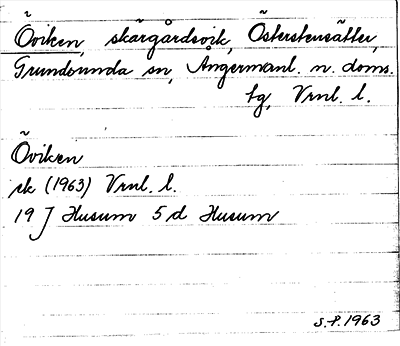 Öviken, skärgårdsvik, Österstensätter,
Grundsunda sn, Ångermanl. n. doms.
tg, Vrnl. l.
Öviken
sk (1963) Vrnl. l.
19 J Husum 5 d Husum
S.P. 1963